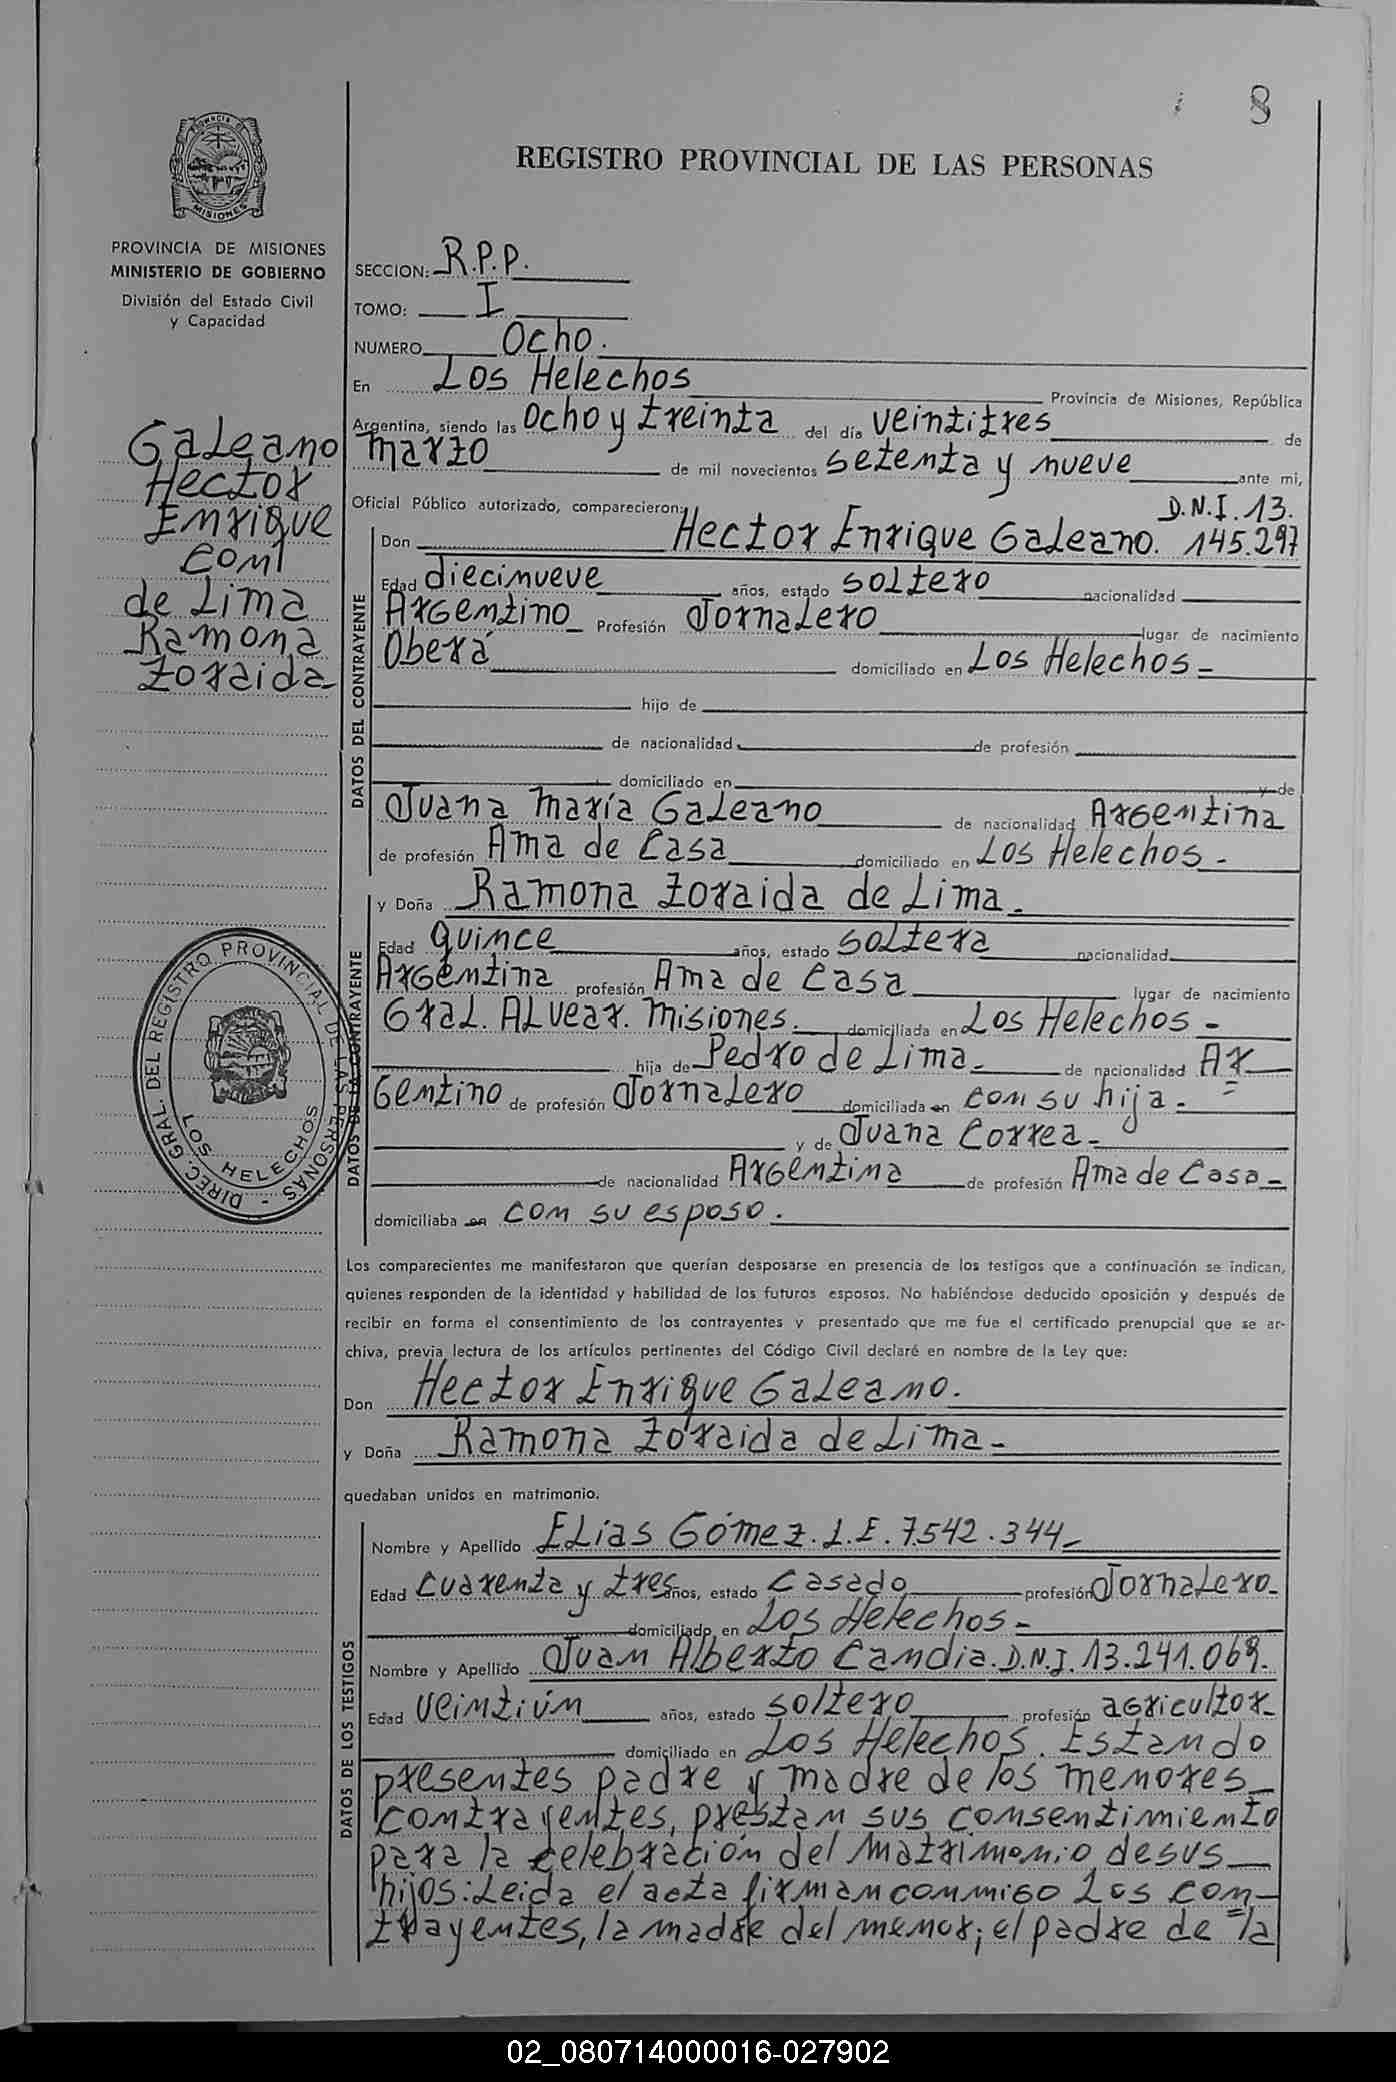 8
REGISTRO PROVINCIAL DE LAS PERSONAS
PROVINCIA DE MISIONES
PROVINCIA DE MISIONES
MINISTERIO DE GOBIERNO
División del Estado Civil
y Capacidad
Galeano
Hector
Enrique
con
de Lima
Ramona
Zoraida
DIREC. GRAL. DEL REGISTRO PROVINCIAL DE LAS PERSONAS -
LOS HELECHOS
SECCION: R.P.P.
TOMO: I
NUMERO Ocho.
En Los Helechos Provincia de Misiones, República
Argentina, siendo las Ocho y treinta del día veintitres de
marzo de mil novecientos setenta y nueve ante mi,
Oficial Público autorizado, comparecieron: D.N.I. 13.
Don Hector Enrique Galeano. 145.297
DATOS DEL CONTRAYENTE
Edad diecinueve años, estado soltero nacionalidad
Argentino Profesión Jornalero lugar de nacimiento
Oberá domiciliado en Los Helechos -
hijo de
de nacionalidad de profesión
domiciliado en y de
Juana María Galeano de nacionalidad Argentina
de profesión Ama de Casa domiciliado en Los Helechos -
y Doña Ramona Zoraida de Lima.
DATOS DE LA CONTRAYENTE
Edad quince años, estado soltera nacionalidad
Argentina profesión Ama de Casa lugar de nacimiento
Gral. Alvear. Misiones. domiciliada en Los Helechos -
hija de Pedro de Lima - de nacionalidad Ar
gentino de profesión Jornalero domiciliada en con su hija -
y de Juana Correa -
de nacionalidad Argentina de profesión Ama de Casa -
domiciliaba en con su esposo.
Los comparecientes me manifestaron que querían desposarse en presencia de los testigos que a continuación se indican,
quienes responden de la identidad y habilidad de los futuros esposos. No habiéndose deducido oposición y después de
recibir en forma el consentimiento de los contrayentes y presentado que me fue el certificado prenupcial que se ar-
chiva, previa lectura de los artículos pertinentes del Código Civil declaré en nombre de la Ley que:
Don Hector Enrique Galeano.
y Doña Ramona Zoraida de Lima -
quedaban unidos en matrimonio.
DATOS DE LOS TESTIGOS
Nombre y Apellido Elías Gómez. L.E. 7.542.344 -
Edad cuarenta y tres años, estado Casado profesión Jornalero -
domiciliado en Los Helechos -
Nombre y Apellido Juan Alberto Candia. D.N.I. 13.241.069.
Edad veintiún años, estado soltero profesión agricultor -
domiciliado en Los Helechos. Estando
presentes padre y madre de los menores
contrayentes, prestan sus consentimiento
para la celebración del matrimonio de sus
hijos: Leida el acta firman conmigo Los con-
trayentes, la madre del menor; el padre de la
02_080714000016-027902